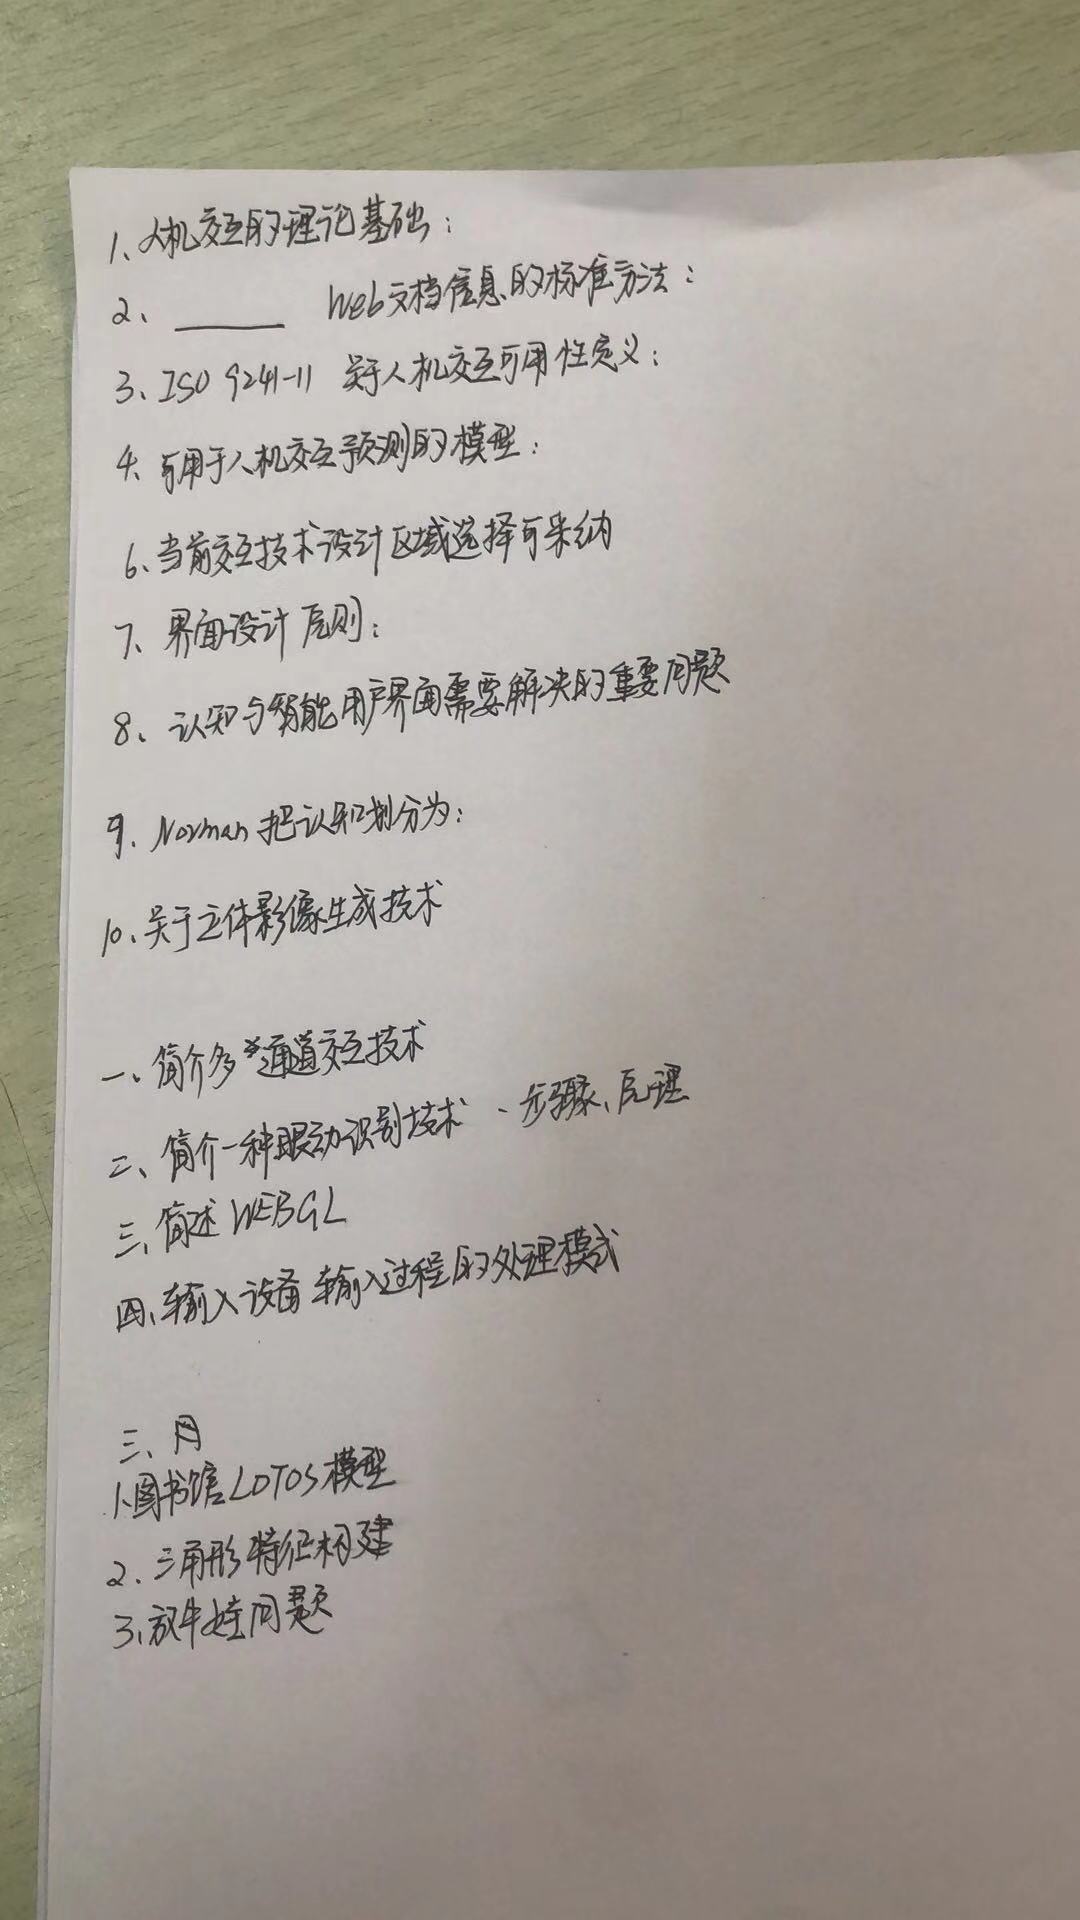 1、人机交互的理论基础：
2、______ Web文档信息的标准方法：
3、ISO 9241-11 关于人机交互可用性定义：
4、可用于人机交互预测的模型：
6、当前交互技术设计区域选择可采纳
7、界面设计原则：
8、认知与智能用户界面需要解决的重要问题
9、Norman 把认知划分为：
10、关于立体影像生成技术
一、简介多通道交互技术
二、简介一种眼动识别技术、步骤、原理
三、简述WEBGL
四、输入设备输入过程的处理模式
三、
1、图书馆LOTOS模型
2、三角形特征构建
3、放牛娃问题